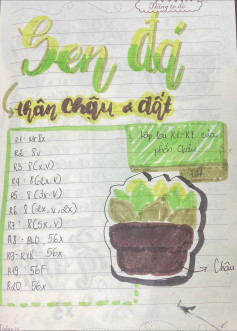 Thông tin đồ
Sen đá
thân chậu & đất
R1: MR 8x
R2: 8v
R3: 8(x,v)
R4: 8(2x,v)
R5: 8(3x,v)
R6: 8(2x,v,2x)
R7: 8(5x,v)
R8: BLO, 56x
R9-R18: 56x
R19: 56F
R20: 56x
Lặp lại R1-R7 của
phần chậu
Đất
Chậu